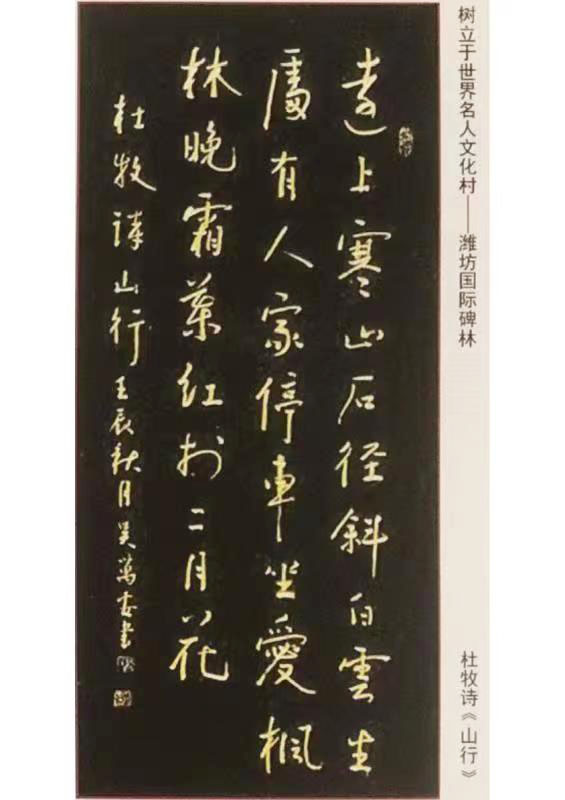 树立于世界名人文化村——潍坊国际碑林
杜牧诗《山行》
遠上寒山石径斜白雲生
處有人家停車坐愛楓
林晚霜葉紅於二月花
杜牧詩山行壬辰秋月吴萬書